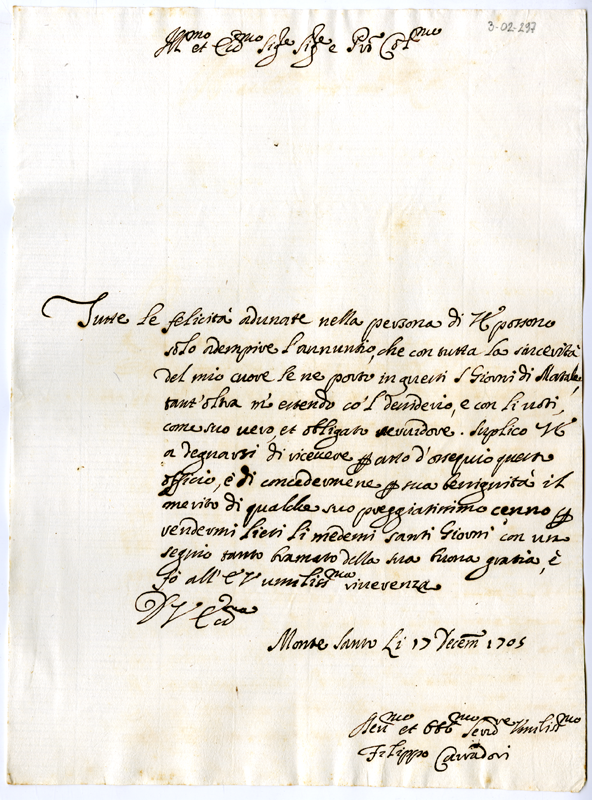 3-02-297
Ill.mo et Ecc.mo Sig.re Sig.re e Prõ Col.mo
Tutte le felicità adunate nella persona di V.E. possono
solo adempire l'annuntio, che con tutta la sincerità
del mio cuore le ne porto in questi S. Giorni di Natale,
tant'oltra m'estendo co'l desiderio, e con li voti,
come suo vero, et obligato servidore. Suplico V.E.
a degnarsi di ricevere ꝑ atto d'ossequio questo
officio, e di concedermene ꝑ sua benignità il
merito di qualche suo preggiatissimo cenno ꝑ
rendermi lieti li medemi santi Giorni con un
segno tanto bramato della sua buona gratia, e
fo all'E.V. umiliss.ma riverenza
D V Ecc.za
Monte Santo Li 17 Decem̃ 1705
Dev.mo et Obb.mo Servid.re Umiliss.mo
Filippo Carradori